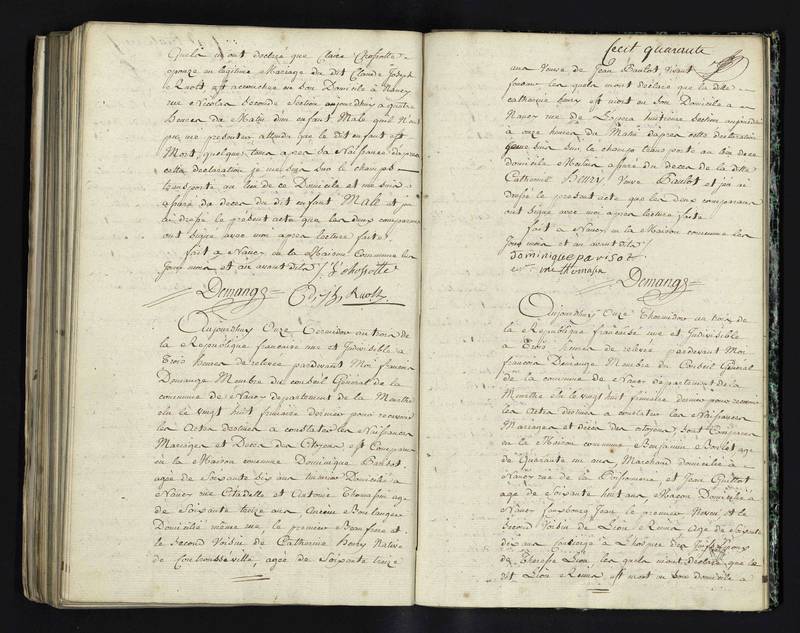 Quels m'ont declaré que Claire Chofrotte
epouze en legitime Mariage du dit Claude Joseph
Ruott est accouchée en son Domicile à Nancy
rue Nicolas Seconde Section aujourdhuy a quatre
heures du Matin d'un enfant Male qu'il N'ont
pu me presenter attendu que le dit enfant est
Mort quelques tems apres sa Naissance d'apres
cette declaration je me suis sur le champs
transporté au lieu de ce Domicile et me suis
assuré du deces du dit enfant Male et j'en
ai drapé le présent acte que les deux comparans
ont signé avec moi apres lecture faite
fait a Nancy en la Maison commune les
Jour mois et an avant dits
Demange
Aujourdhuy Onze Termidor an trois de
la République française une et Indivisible a
Trois heures de relevée pardevant Moi françois
Demange Membre du Conseil Général de la
commune de Nancy departement de la Meurthe
elu le vingt huit frimaire dernier pour recevoir
les Actes destinés a constater les Naissances
Mariages et Deces des Citoyens est Comparu
en la Maison commune Dominique Parisot
agée de Soixante six ans Domicilé a
Nancy rue Citadelle et Antoine Thomassin age
de Soixante treize ans Ancien Boulanger
Domicilié même rue le premier Beau frere et
le Second Voisin de Catherine Henry Native
de Controusséville, agée de Soixante treize
Cecit quarante
ans Veuve de Jean Baulot, Vivant
les quels m'ont déclaré que la dite
catherine henry est mort en son Domicile a
Nancy rue de huitieme Section aujourdhuy
à onze heures du Matin d'apres cette declaration
je me suis sur le champs transporté au lieu de ce
domicile assuré du deces de la ditte
Catherine Henry Veuve Baulot et j'en ai
drapé le present acte que les deux comparans
ont signé avec moi apres lecture faite
fait a Nancy en la Maison commune les
Jour mois et an avant dits
dominique parisot
Demange
Aujourdhuy Onze Thermidor an trois de
la République française une et Indivisible
a Trois heures de relevée pardevant Moi
françois Demange Membre du Conseil Général
de la commune de Nancy departement de la
Meurthe elu le vingt huit frimaire dernier pour recevoir
les Actes destinés a constater les Naissances
Mariages et décés des citoyens sont Comparus
en la Maison commune Benjamin age
de Quarante un ans Marchand domicilié a
Nancy rue de la Poissonerie et Jean
age de Soixante huit ans Macon Domicilié a
Nancy faubourg Jean le premier Neveu et le
Second Voisin de Lion age de Soixante
dix ans Concierge a
de Therese Lion, les quels m'ont declaré que le
dit Lion est mort en son domicile a